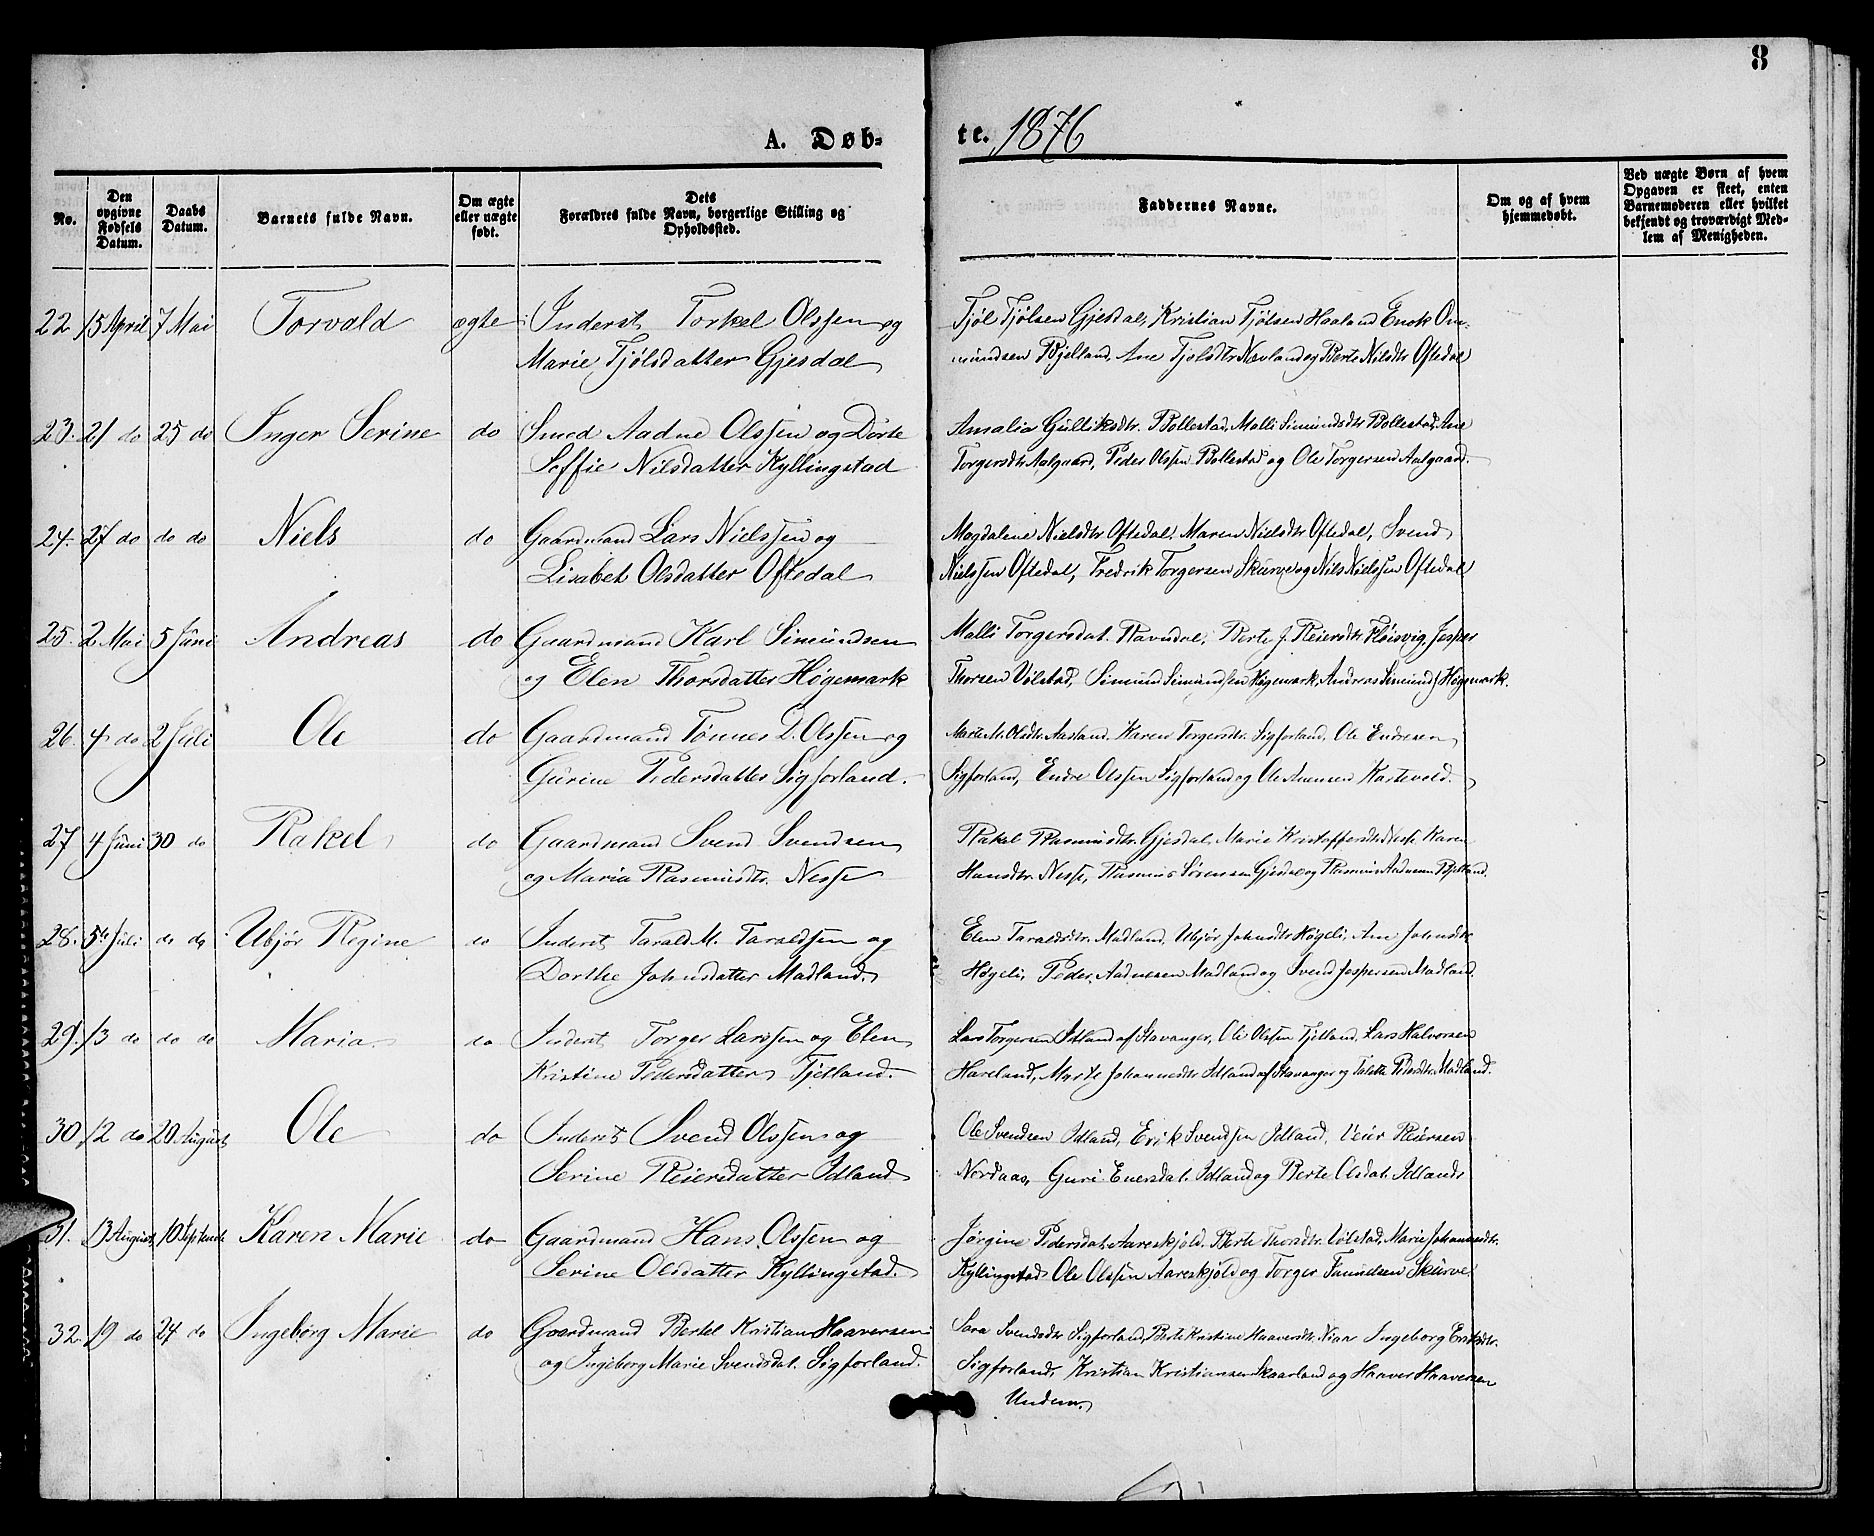 8
A. Døb-
te. 1876
No.
Den opgivne Fødsels Datum.
Daabs Datum.
Barnets fulde Navn.
Om ægte eller uægte født.
Dets Forældres fulde Navn, borgerlige Stilling og Opholdssted.
Faddernes Navne.
Om og af hvem hjemmedøbt.
Ved uægte Børn af hvem Opgaven er skeet, enten Barnemoderen eller hvilket bekjendt og troværdigt Medlem af Menigheden.
22 15 April 7 Mai Torvald ægte Inderst Torkel Olssen og
Marie Tjølsdatter Gjesdal
Tjøl Tjølsen Gjesdal, Kristian Tjølsen Haaland Enok Om-
mundsen Bjelland, Ane Tjolsdtr Navland og Berte Nilsdtr Oftedal
23. 21 do 25 do Inger Serine do Smed Aadne Olssen og Dorte
Soffie Nilsdatter Kyllingstad
Amalia Gulliksdtr. Bollestad, Malli Simundsdtr Bollestad, Ane
Torgersdtr Aalgaard, Peder Olssen Bollestad og Ole Torgersen Aalgaard.
24. 27 do do do Niels do Gaardmand Lars Nielssen og
Lisabet Olsdatter Oftedal
Magdalene Nielsdtr Oftedal, Maren Nielsdtr Oftedal, Svend
Nielssen Oftedal, Fredrik Torgersen Skurve og Nils Nielssen Oftedal
25. 2 Mai 5 Juni Andreas do Gaardmand Karl Simundsen
og Elen Thorsdatter Høgemark
Malli Torgersdat. Ravndal, Berte J. Reiersdtr Fløisvig, Jesper
Thorsen Ølstad, Simund Simundsen Høgemark, Andreas Simunds. Høgemark.
26. 4 do 2 Juli Ole do Gaardmand Tønnes D. Olssen og
Gurine Pedersdatter Sigforland.
Marte M. Olsdtr. Aasland. Karen Torgersdtr. Sigforland, Ole Endresen
Sigforland, Endre Olssen Sigforland og Ole Anensen Kartevold.
27 4 Juni 30 do Rakel do Gaardmand Svend Svendsen
og Maria Rasmusdtr. Nesse
Rakel Rasmusdtr. Gjesdal, Marie Kristoffersdtr Nesse Karen
Hansdtr. Nesse, Rasmus Sørensen Gjesdal og Rasmus Aadnesen Bjelland.
28. 5te Juli do do Ubjør Regine do Inderst Tarald M. Taraldsen og
Dorthe Johnsdatter Madland.
Elen Taraldsdtr. Madland, Ubjør Johnsdtr Høgeli, Ane Johnsdtr
Høgeli, Peder Aadnesen Madland og Svend Jespersen Madland.
29. 13 do do do Maria do Inderst Torger Larssen og Elen
Kristine Pedersdatter Tjelland.
Lars Torgersen Idland af Stavanger, Ole Olssen Tjelland, Lars Halvorsen
Haveland, Marte Johannesdtr Idland af Stavanger og Talette Pedersdtr. Madland.
30 12 do 20 August Ole do Inderst Svend Olssen og
Serine Reiersdatter Idland
Ole Svendsen Idland, Erik Svendsen Idland, Reier Reiersen
Nordaas, Guri Enersdat. Idland og Berte Olsdat. Idland
31. 13 August 10 Septemb. Karen Marie do Gaardmand Hans Olssen og
Serine Olsdatter Kyllingstad.
Jørgine Pedersdat. Aareskjold. Berte Thorsdtr. Ølstad, Marie Johannesdtr.
Kyllingstad Ole Olssen Aareskjold og Torger Tørundsen Skurve
32. 19 do 24 do Ingeborg Marie do Gaardmand Bertel Kristian Haaversen
og Ingeborg Marie Svendsdat. Sigforland.
Sara Svendsdtr Sigforland, Berte Kristine Haaversdtr. Njaa Ingeborg Eriksdtr.
Sigforland, Kristian Kristiansen Skaarland og Haaver Haaversen
Undem.